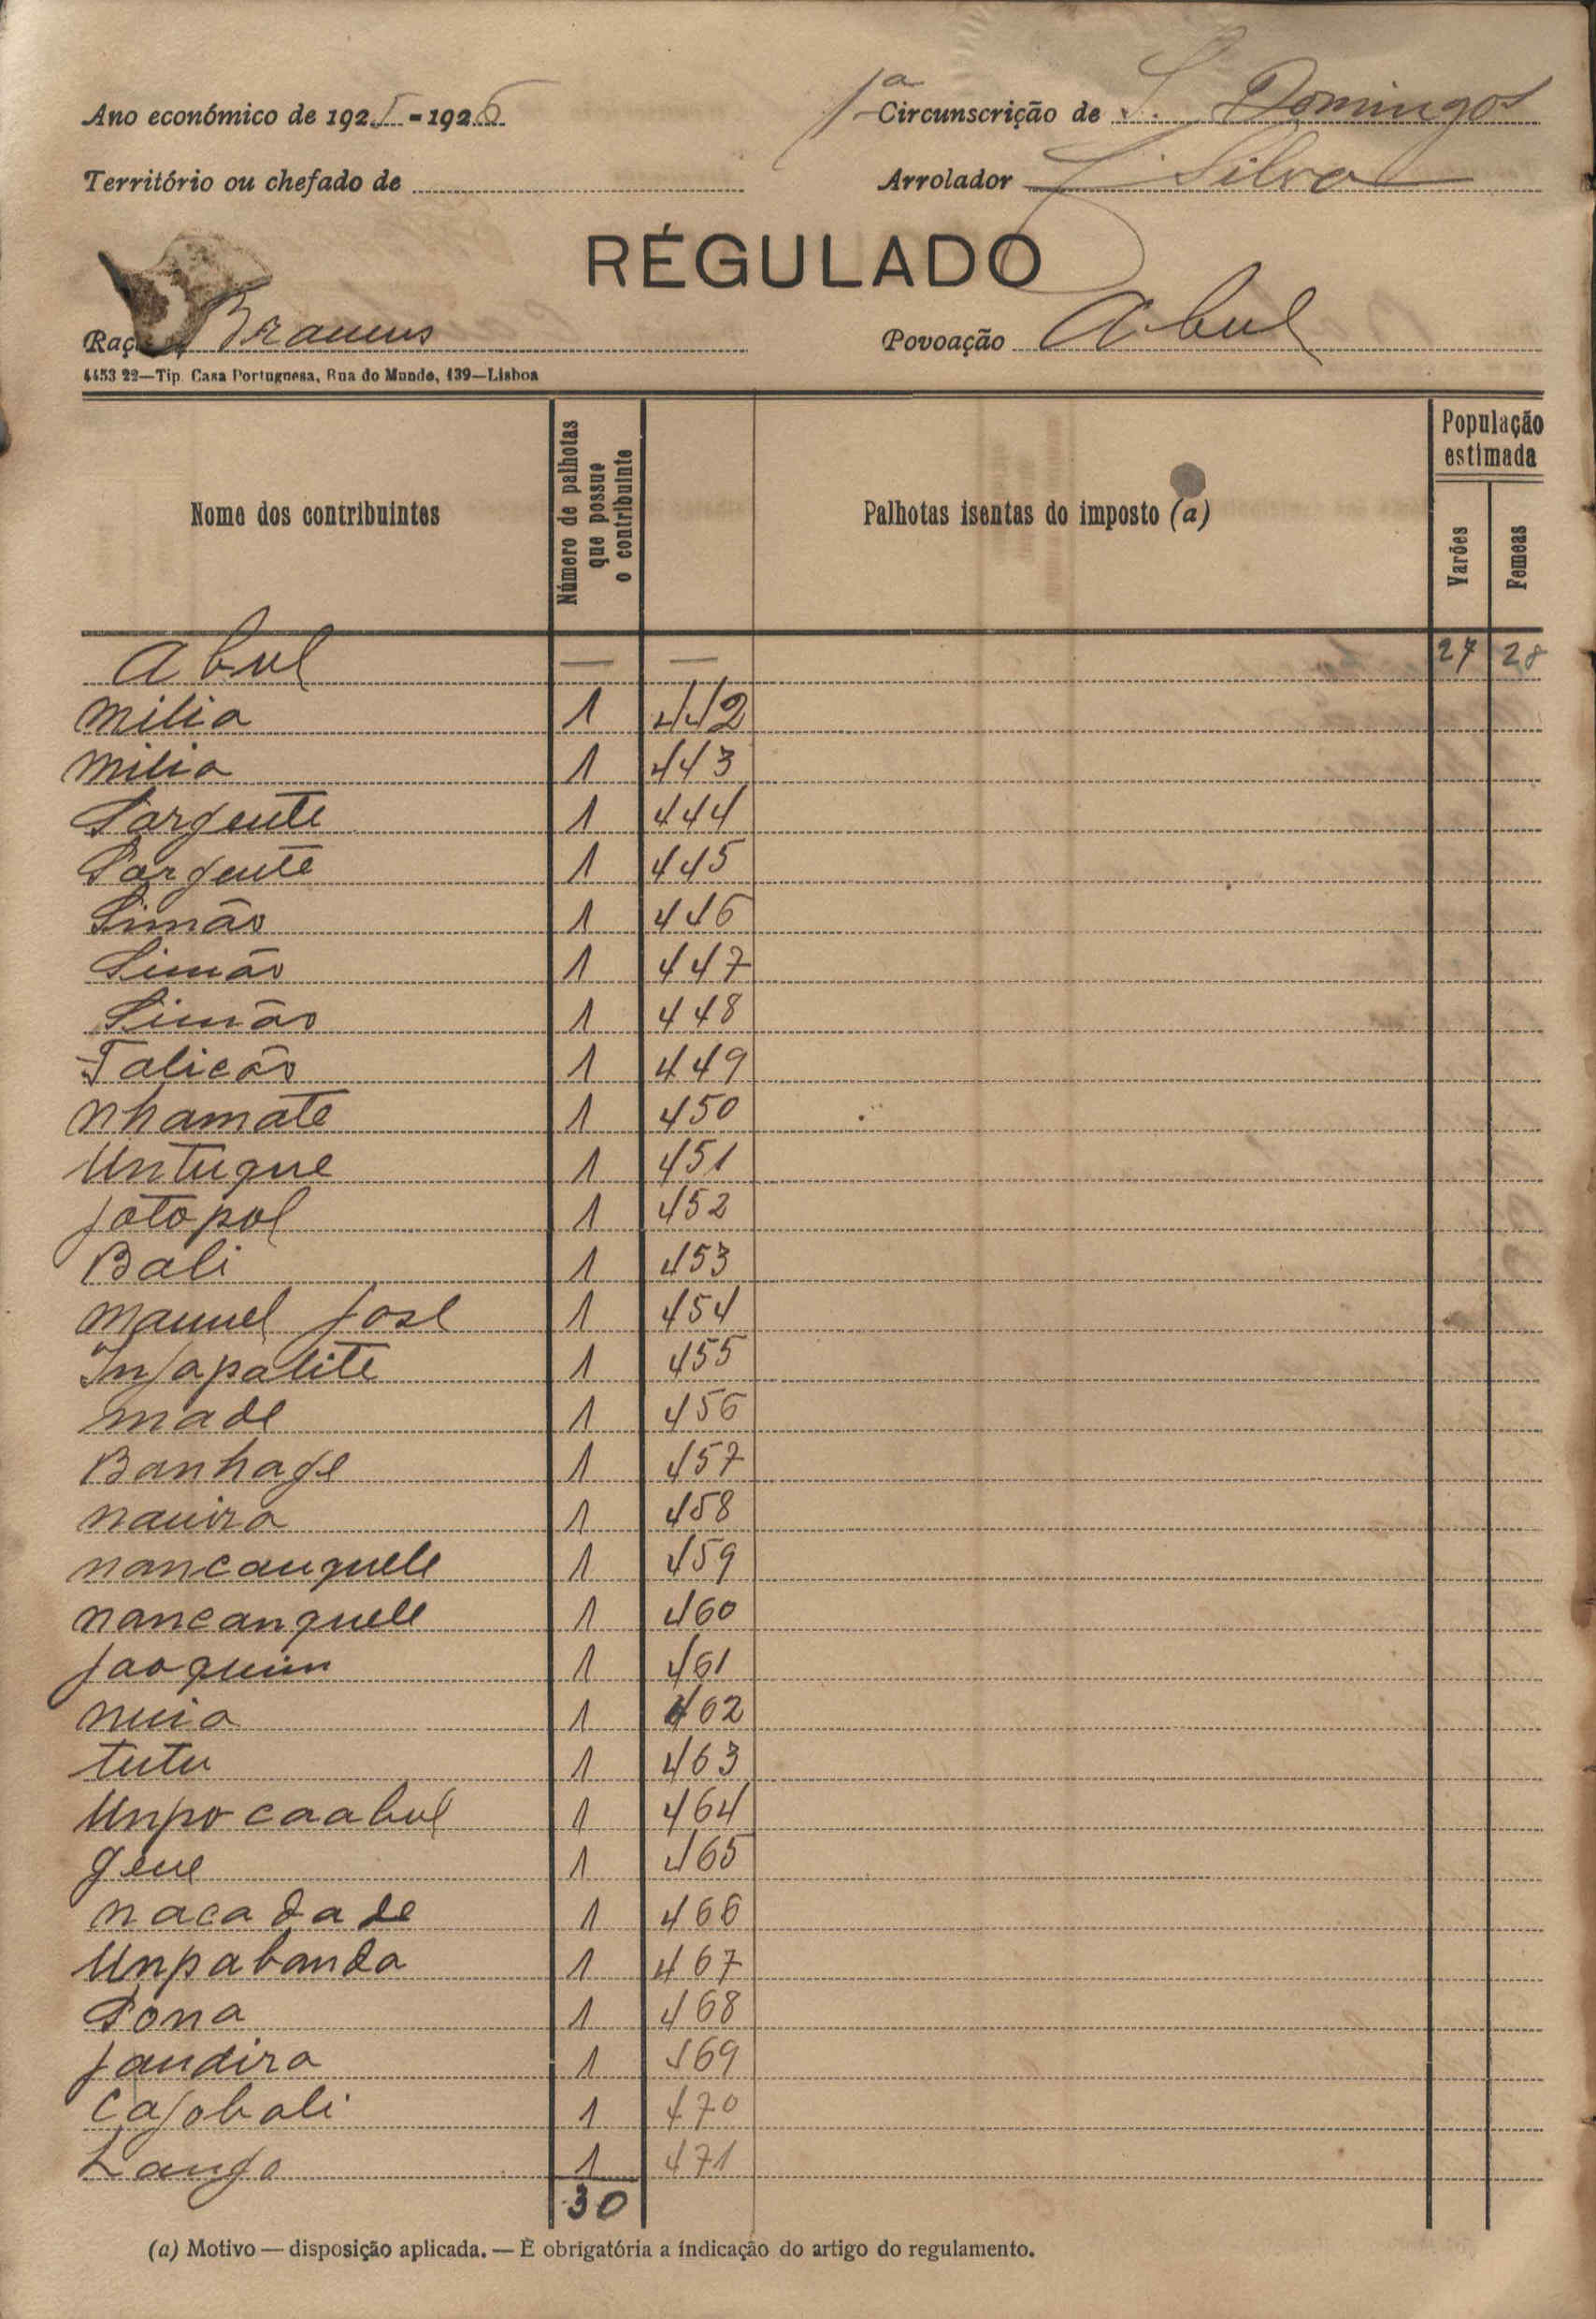 Ano económico de 1925 - 1926
1ª Circunscrição de S. Domingos
Território ou chefado de
Arrolador L. Silva
RÉGULADO
Raça Brames
Povoação Abul
4453 22—Tip. Casa Portuguesa, Rua do Mundo, 139—Lisboa
Nome dos contribuintes
Número de palhotas que possue o contribuinte
Palhotas isentas do imposto (a)
População estimada
Varões
Femeas
Abul — — 27 28
Milia 1 442
Milia 1 443
Sargente 1 444
Sargente 1 445
Simão 1 446
Simão 1 447
Simão 1 448
Talicão 1 449
Nhamate 1 450
Untuque 1 451
Jotopol 1 452
Bali 1 453
Manuel José 1 454
Injapalite 1 455
Made 1 456
Banhage 1 457
Nauira 1 458
Nancanquele 1 459
Nancanquele 1 460
Joaquim 1 461
1 462
tutu 1 463
Unpocaabul 1 464
1 465
Nacadade 1 466
Unpabanda 1 467
Sona 1 468
Jandira 1 469
Cajobali 1 470
1 471
30
(a) Motivo — disposição aplicada. — É obrigatória a indicação do artigo do regulamento.